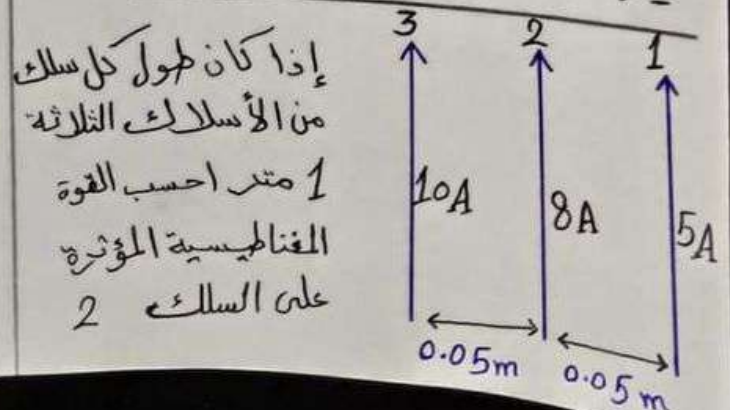 إذا كان طول كل سلك
من الأسلاك الثلاثة
1 متر احسب القوة
المغناطيسية المؤثرة
على السلك 2
3
2
1
10A
8A
5A
0.05m
0.05m